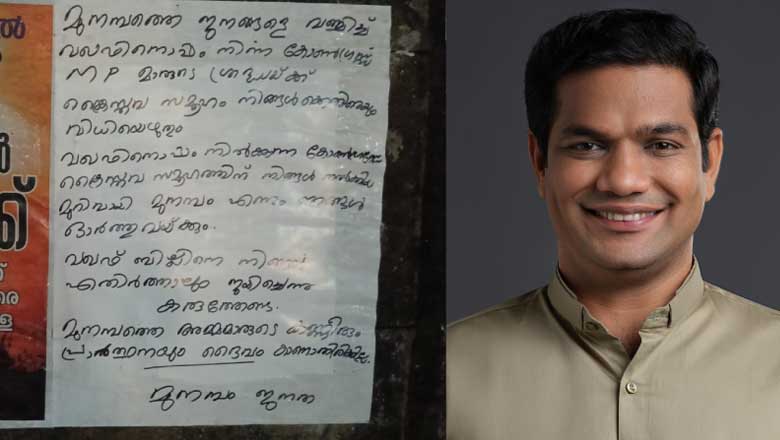 മുനമ്പത്തെ ജനങ്ങളെ വഞ്ചിച്ച്
വഖഫിനൊപ്പം നിന്ന കോൺഗ്രസ്സ്
MP മാരുടെ ശ്രദ്ധയ്ക്ക്
ക്രൈസ്തവ സമൂഹം നിങ്ങൾക്കെതിരെയും
വിധിയെഴുതും
വഖഫിനൊപ്പം നിൽക്കുന്ന
ക്രൈസ്തവ സമൂഹത്തിന് നിങ്ങൾ നൽകിയ
മുറിവായി മുനമ്പം എന്നും ഞങ്ങൾ
ഓർത്തുവയ്ക്കും.
വഖഫ് ബില്ലിനെ നിങ്ങൾ
എതിർത്താലും ജയിച്ചെന്നു
കരുതേണ്ട.
മുനമ്പത്തെ അമ്മമാരുടെ കണ്ണീരും
പ്രാർത്ഥനയും ദൈവം കാണാതിരിക്കില്ല.
മുനമ്പം ജനത